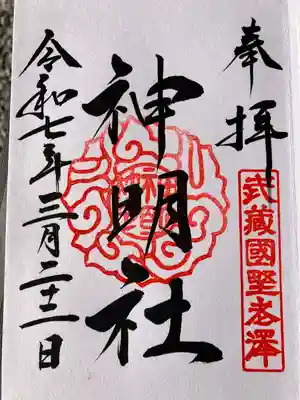 奉拝
武蔵國野老澤
神明社
令和七年三月二十二日